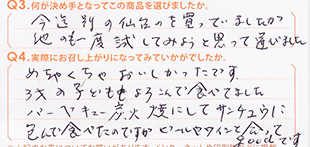 Q3.何が決め手となってこの商品を選びましたか。
今迄別の仙台のを買ってましたが
他のも一度試してみようと思って選びました
Q4.実際にお召し上がりになってみていかがでしたか。
めちゃくちゃおいしかったです
3才の子どももよろこんで食べてました
バーベキュー炭火焼にしてサンチュウに
包んで食べたのですがビールやワインと合って
goodです